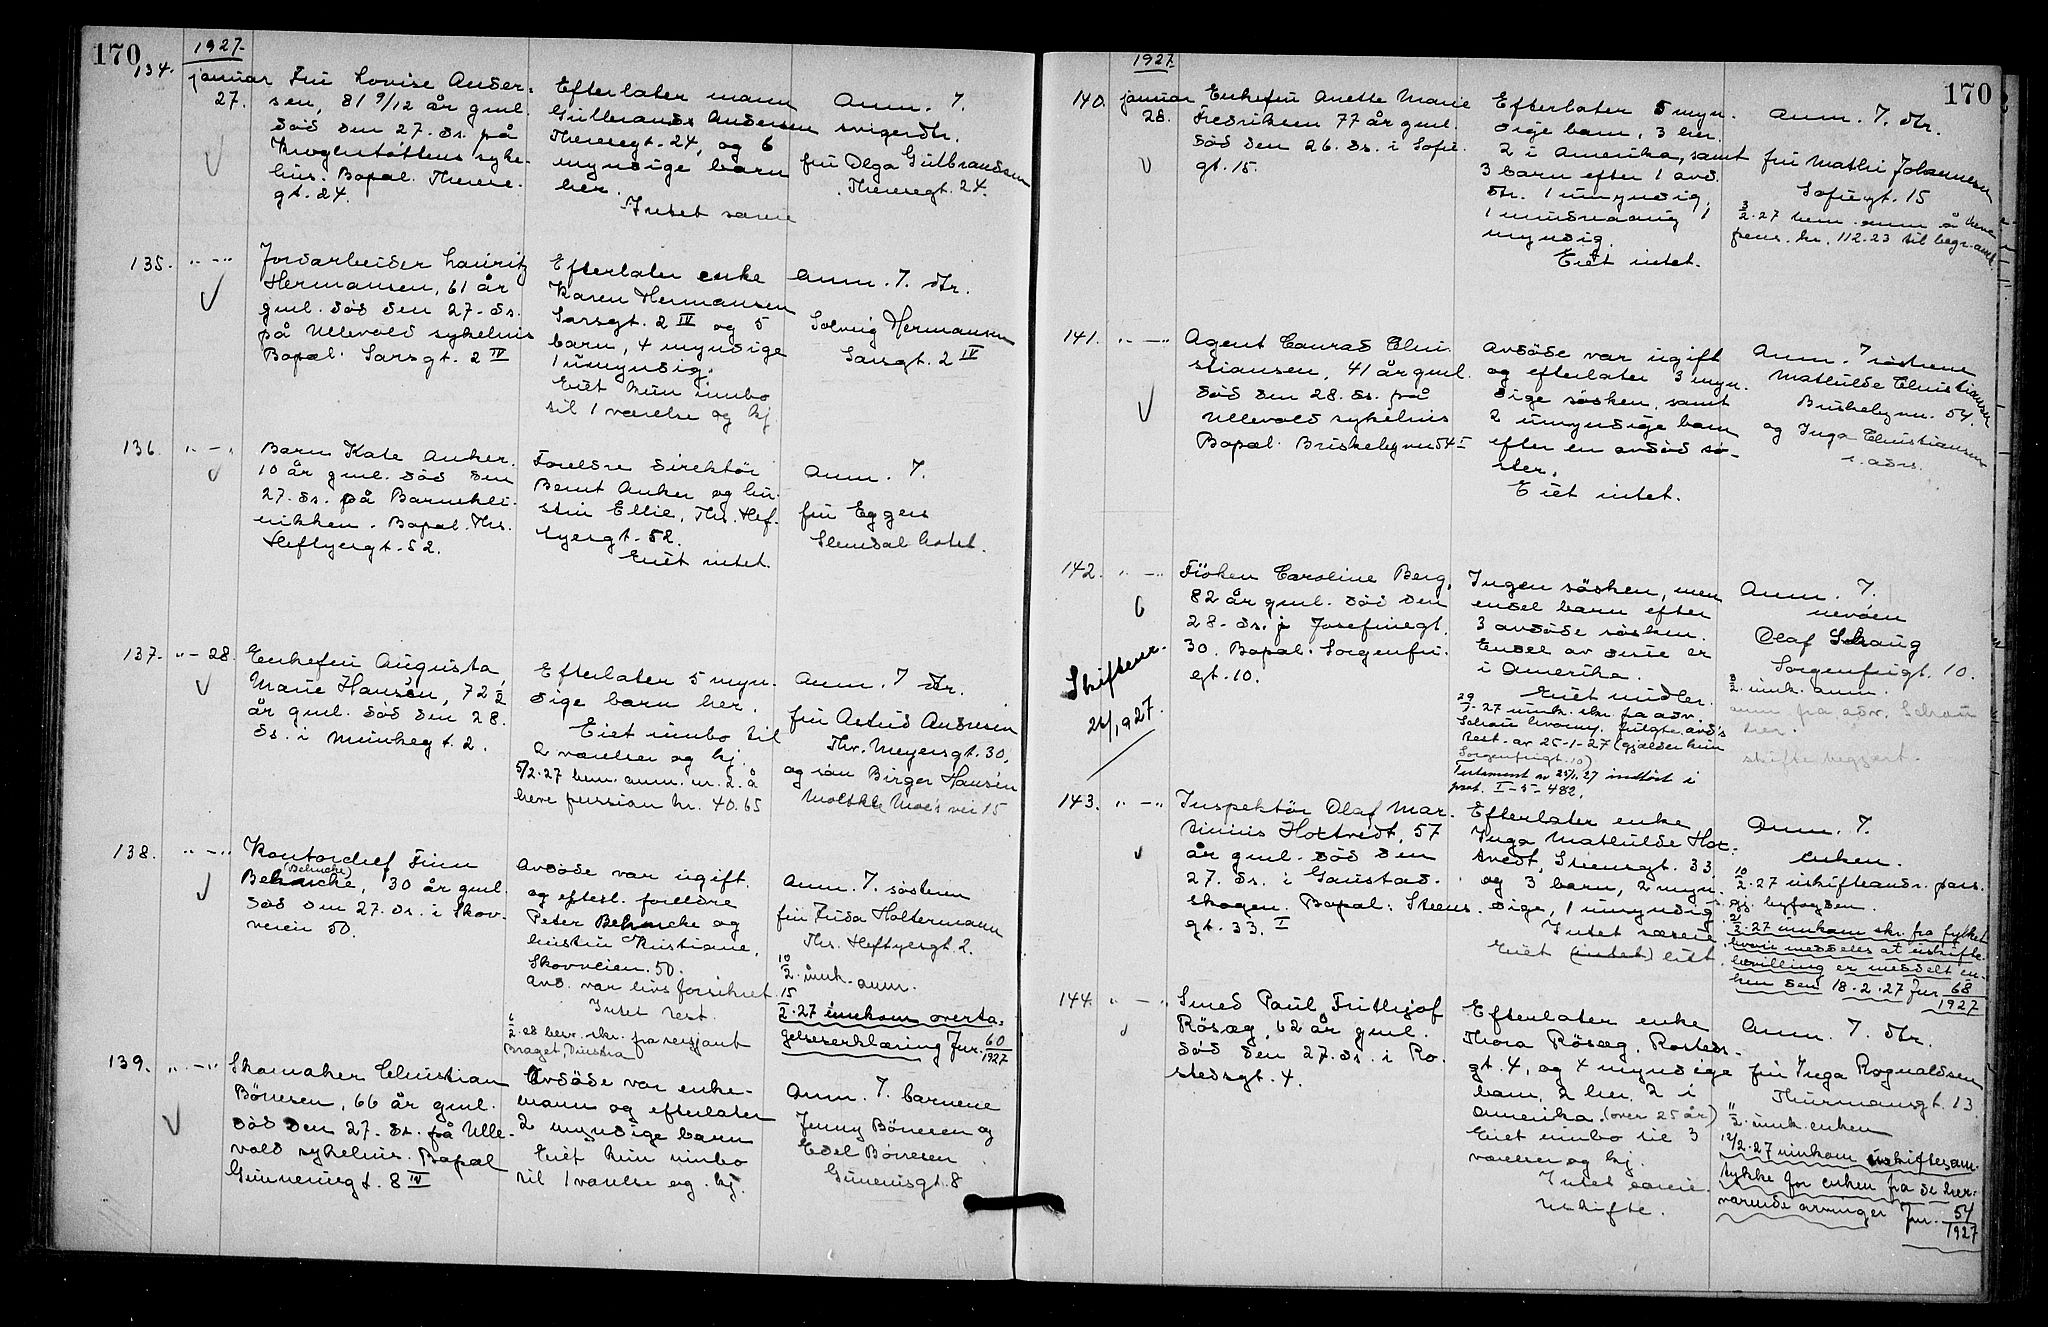 170
1927.
134.
januar
27.
Fru Lovise Ander-
sen, 81 9/12 år gml.
död den 27. ds. på
Krogstöttens syke-
hus. Bopæl. Therese-
gt. 24.
Efterlater mann
Gulbrands Andersen
Theresegt. 24, og 6
myndige barn
her.
Intet særeie
Anm. 7.
svigerdtr.
fru Olga Gulbrandsen
Theresegt. 24.
135. " — "
Jordarbeider Lauritz
Hermansen, 61 år
gml. död den 27. ds.
på Ullevold sykehus
Bopæl. Sarsgt. 2 IV
Efterlater enke
Karen Hermansen
Sarsgt. 2 IV og 5
barn, 4 myndige
1 umyndig.
Eiet kun innbo
til 1 værelse og kj
Anm. 7. dtr.
Solveig Hermansen
Sarsgt. 2 IV
136. " — "
Barn Kate Anker.
10 år gml. död den
27. ds. på Barnekli-
nikken. Bopæl. Ths.
Heftyesgt. 52.
Foreldre direktör
Bernt Anker og hu-
stru Ellie, Ths. Hef-
tyesgt. 52.
Eiet intet.
Anm. 7.
fru Eggers
Slemdal hotel.
137. " — 28.
Enkefru Augusta
Marie Hansen, 72 1/2
år gml. död den 28.
ds. i Munkegt. 2.
Efterlater 5 myn-
dige barn her.
Eiet innbo til
2 værelser og kj.
5/2.27 bem. anm. m. 2. å
heve pension kr. 40.65
Anm. 7 dtr.
fru Astrid Andresen
Thv. Meyersgt. 30,
og sön Birger Hansen
Moltke Moe's vei 15
138. " — "
Kontorchef Finn
(Behncke)
Behncke, 30 år gml.
död den 27. ds. i Skov-
veien 50.
Avdöde var ugift
og efterl. foreldre
Peter Behncke og
hustru Kristiane,
Skovveien. 50.
Avd. var livsforsikret
Intet test.
6/2.28 bevr. skr. fra sersjant
Braget, Dinstra
Anm. 7. söstren
fru Frida Holtermann
Ths. Heftyesgt. 2.
10/2. innk. anm.
15/2.27 innkom overta-
gelseserklæring Jnr. 60/1927
139. " — "
Skomaker Christian
Bönesen, 66 år gml.
död den 27. ds. på Ulle-
vold sykehus. Bopæl
Grünersgt. 8 IV
Avdöde var enke-
mann og efterlater
2 myndige barn
Eiet kun innbo
til 1 værelse og kj.
Anm. 7. barnene
Jenny Bönesen og
Edel Bönesen
Grünersgt. 8
1927
170
140.
januar
28.
Enkefru Anette Marie
Fredriksen 77 år gml.
död den 26. ds. i Sofie-
gt. 15.
Efterlater 5 myn-
dige barn, 3 her
2 i Amerika, samt
3 barn efter 1 avd.
dtr. 1 umyndig,
1 mindreårig 1
myndig.
Eiet intet.
Anm. 7. dtr.
fru Mathi Johannesen
Sofiegt. 15
3/2.27 bem. anm. å heve
pens. kr. 112.23 til begr. omk.
141. " — "
Agent Conrad Chri-
stiansen, 41 år gml.
död den 28. ds. på
Ullevold sykehus
Bopæl. Briskebyveien 54 I
Avdöde var ugift
og efterlater 3 myn-
dige sösken, samt
2 umyndige barn
efter en avdöd sö-
ster.
Eiet intet.
Anm. 7 söstrene
Mathilde Christiansen
Briskebyvn. 54.
og Inga Christiansen
s. adrs.
142. " — "
Fröken Caroline Berg,
82 år gml. död den
28. ds. i Josefinegt.
30. Bopæl. Sorgenfri-
gt. 10.
Skiftene
26/1927.
Ingen sösken, men
endel barn efter
3 avdöde sösken.
Endel av disse er
i Amerika.
Eiet midler.
29/1-27 innk. skr. fra adv.
Schou hvorav. fulgte avd's
test. av 25-1-27 (gjelder kun
Sorgenfrigt. 10)
Testament av 25/1.27 innfört i
prot. I-5-482.
Anm. 7.
nevöen
Olaf Schaug
Sorgenfrigt. 10.
3/2. innk. anm.
anm. fra adv. Schou
her.
skifte begjært.
143. " — "
Inspektör Olaf Mar-
tinius Hoxtvedt, 57
år gml. död den
27. ds. i Gaustad-
skogen. Bopæl. Steens-
gt. 33. I
Efterlater enke
Inga Mathilde Hox-
tvedt, Steensgt. 33.
og 3 barn, 2 myn-
dige, 1 umyndig
Intet særeie
Eiet (intet) litt.
Anm. 7.
enken.
10/2.27 uskifteandr. pass.
gj. byfogden.
21/2.27 innkom skr. fra fylket
hvori meddeles at uskifte-
bevilling er meddelt en-
ken den 18.2.27 Jnr. 68/1927
144. " — "
Smed Paul Frithjof
Rösæg, 62 år gml.
död den 27. ds. i Ro-
stedsgt. 4.
Efterlater enke
Thora Rösæg, Rosteds-
gt. 4, og 4 myndige
barn, 2 her, 2 i
Amerika (over 25 år)
Eiet innbo til 3
værelser og kj.
Intet særeie.
Uskifte.
Anm. 7. dtr.
fru Inga Rognaldsen
Thurmansgt. 13.
11/2. innk. enken
12/2.27 innkom uskiftesam-
tykke for enken fra de her-
værende arvinger Jnr. 54/1927